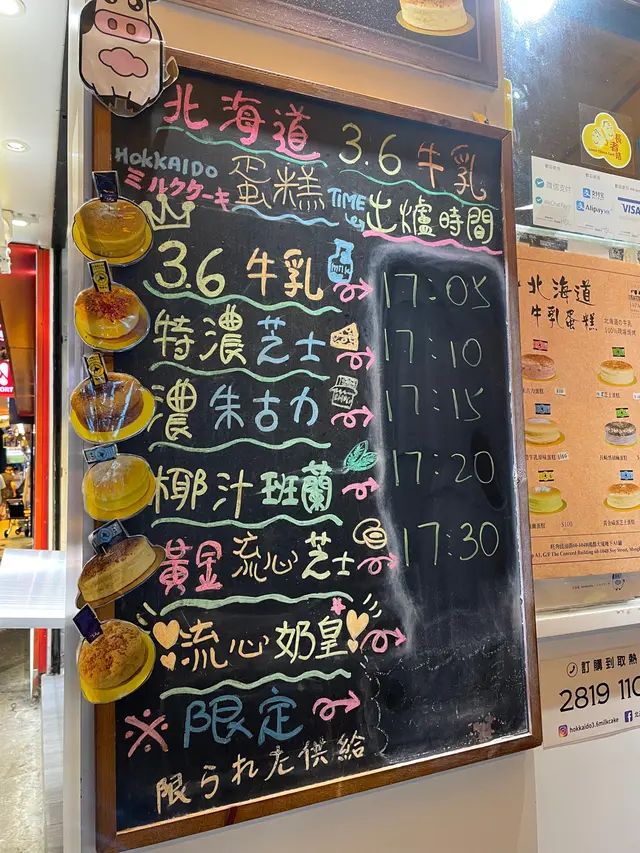 北海道 3.6 牛乳
HOKKAIDO
ミルクケーキ
蛋糕
TIME
出爐時間
3.6 牛乳
milk
17:05
特濃芝士
17:10
濃朱古力
17:15
椰汁班蘭
17:20
黃金流心芝士
17:30
流心奶皇
※限定
限られた供給
微信支付
Alipay
VISA
北海道
牛乳蛋糕
北海道の牛乳
訂購到取熱
2819 110
hokkaido3.6milkcake